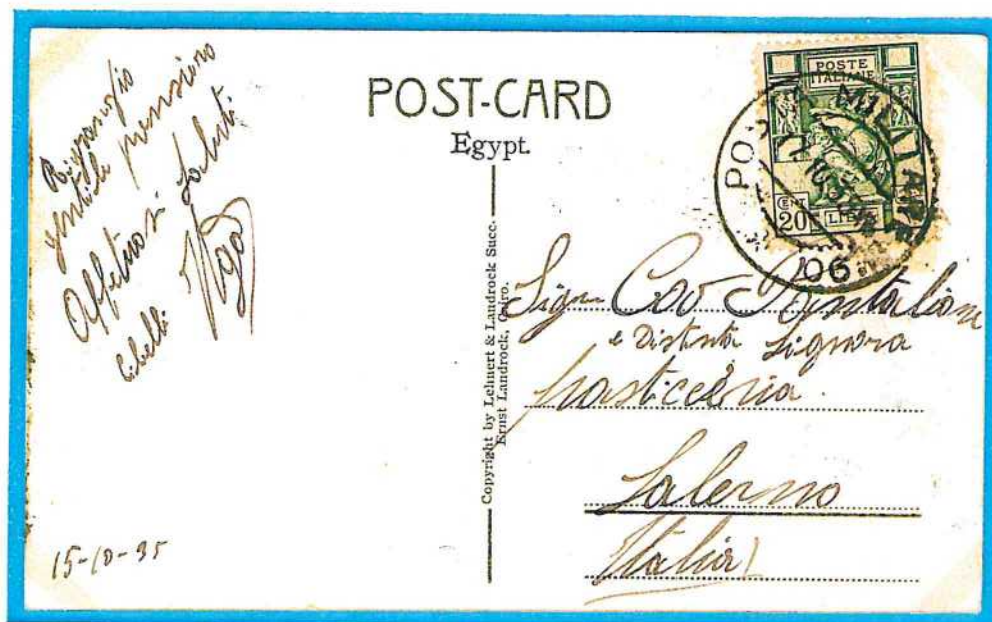 Ringrazio
gentile pensiero
Affettuosi saluti
Ugo
15-10-35
POST-CARD
Egypt.
Copyright by Lehnert & Landrock Succ.
Ernst Landrock, Cairo.
POSTE
ITALIANE
CENT
20
LIBIA
POSTA MILITARE
106
Sign Cav Pantaleone
e Distinta Signora
pasticceria
Salerno
Italia